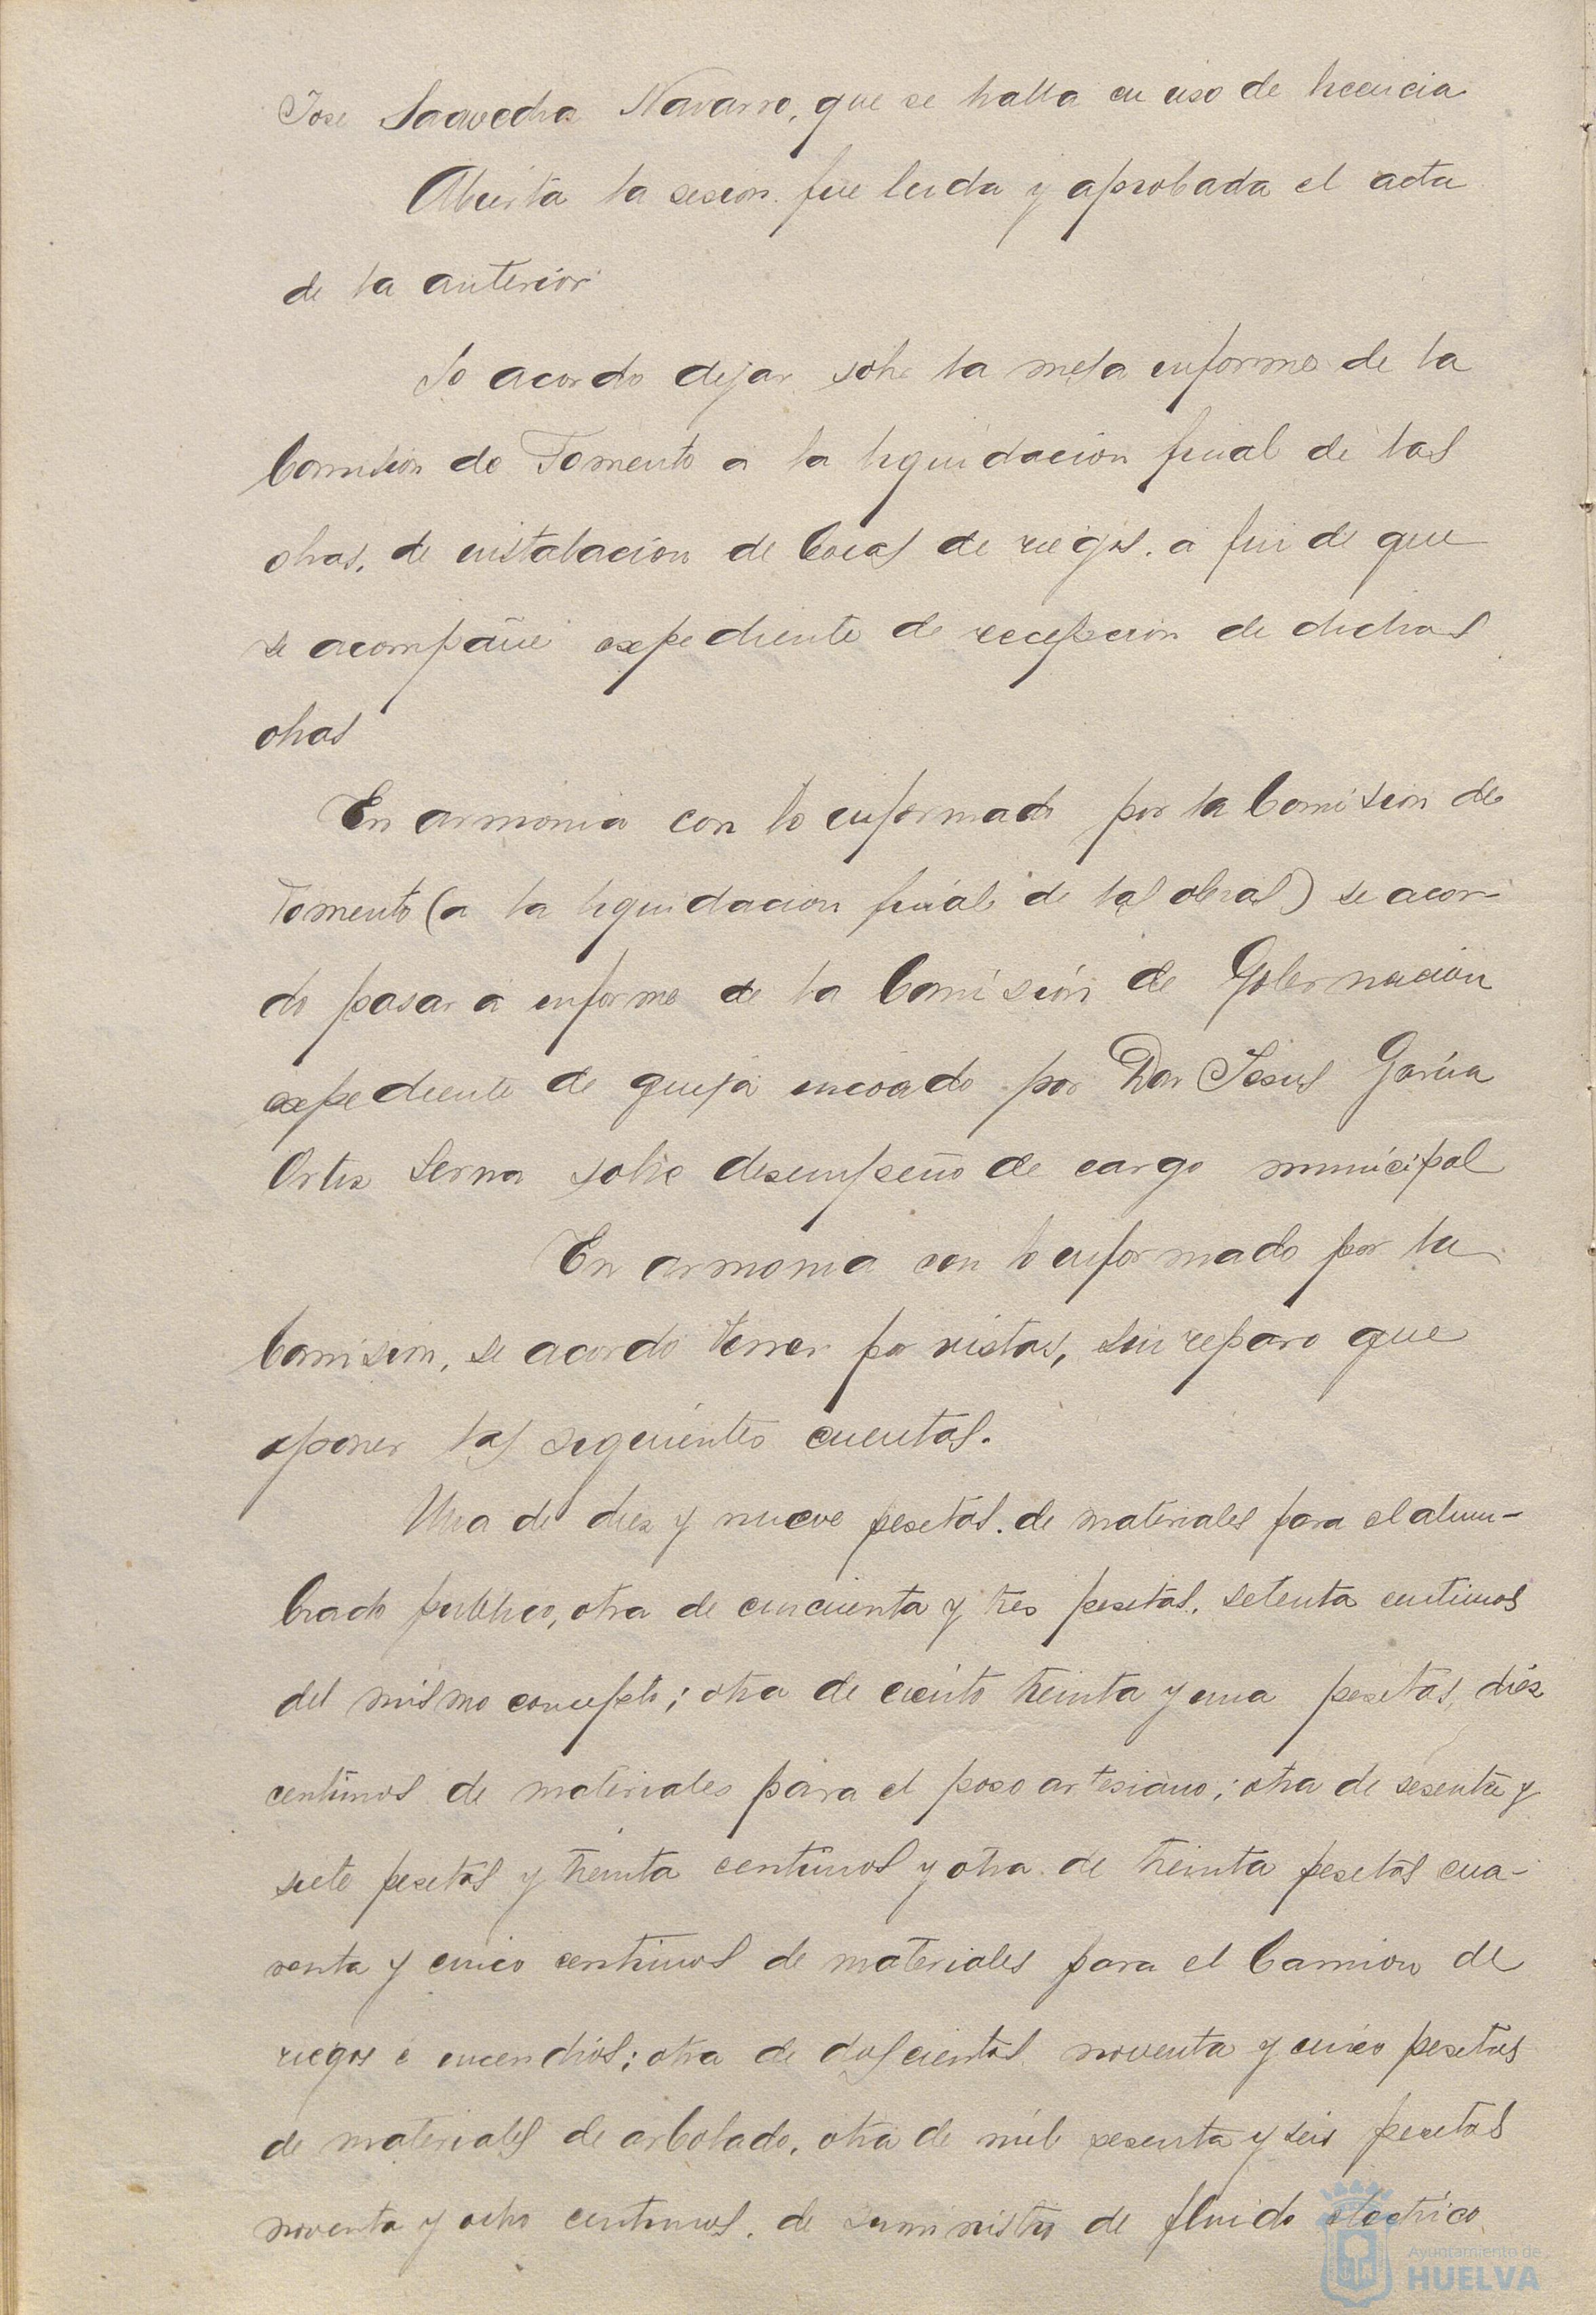 Jose Saavedra Navarro, que se halla en uso de licencia
Abierta la sesion fue leida y aprobada el acta
de la anterior
Se acordo dejar sobre la mesa informe de la
Comision de Fomento a la liquidacion final de las
obras, de instalacion de bocas de riegos, a fin de que
se acompañe expediente de recepcion de dichas
obras
En armonia con lo informado por la Comision de
Fomento (a la liquidacion final de las obras) se acor-
do pasar a informe de la Comisión de Gobernacion
expediente de queja incoado por Don Jesus Garcia
Ortiz Serna sobre desempeño de cargo municipal
En armonia con lo informado por la
Comision, se acordo tener por vistas, sin reparo que
oponer las siguientes cuentas.
Una de diez y nueve pesetas de materiales para el alum-
brado publico, otra de cincuenta y tres pesetas, setenta centimos
del mismo concepto; otra de ciento treinta y una pesetas, diez
centimos de materiales para el poso artesiano; otra de sesenta y
siete pesetas y treinta centimos y otra de treinta pesetas cua-
renta y cinco centimos de materiales para el Camion de
riegos e incendios; otra de doscientas noventa y cinco pesetas
de materiales de arbolado, otra de mil sesenta y seis pesetas
noventa y ocho centimos, de suministro de fluido electrico
Ayuntamiento de
HUELVA